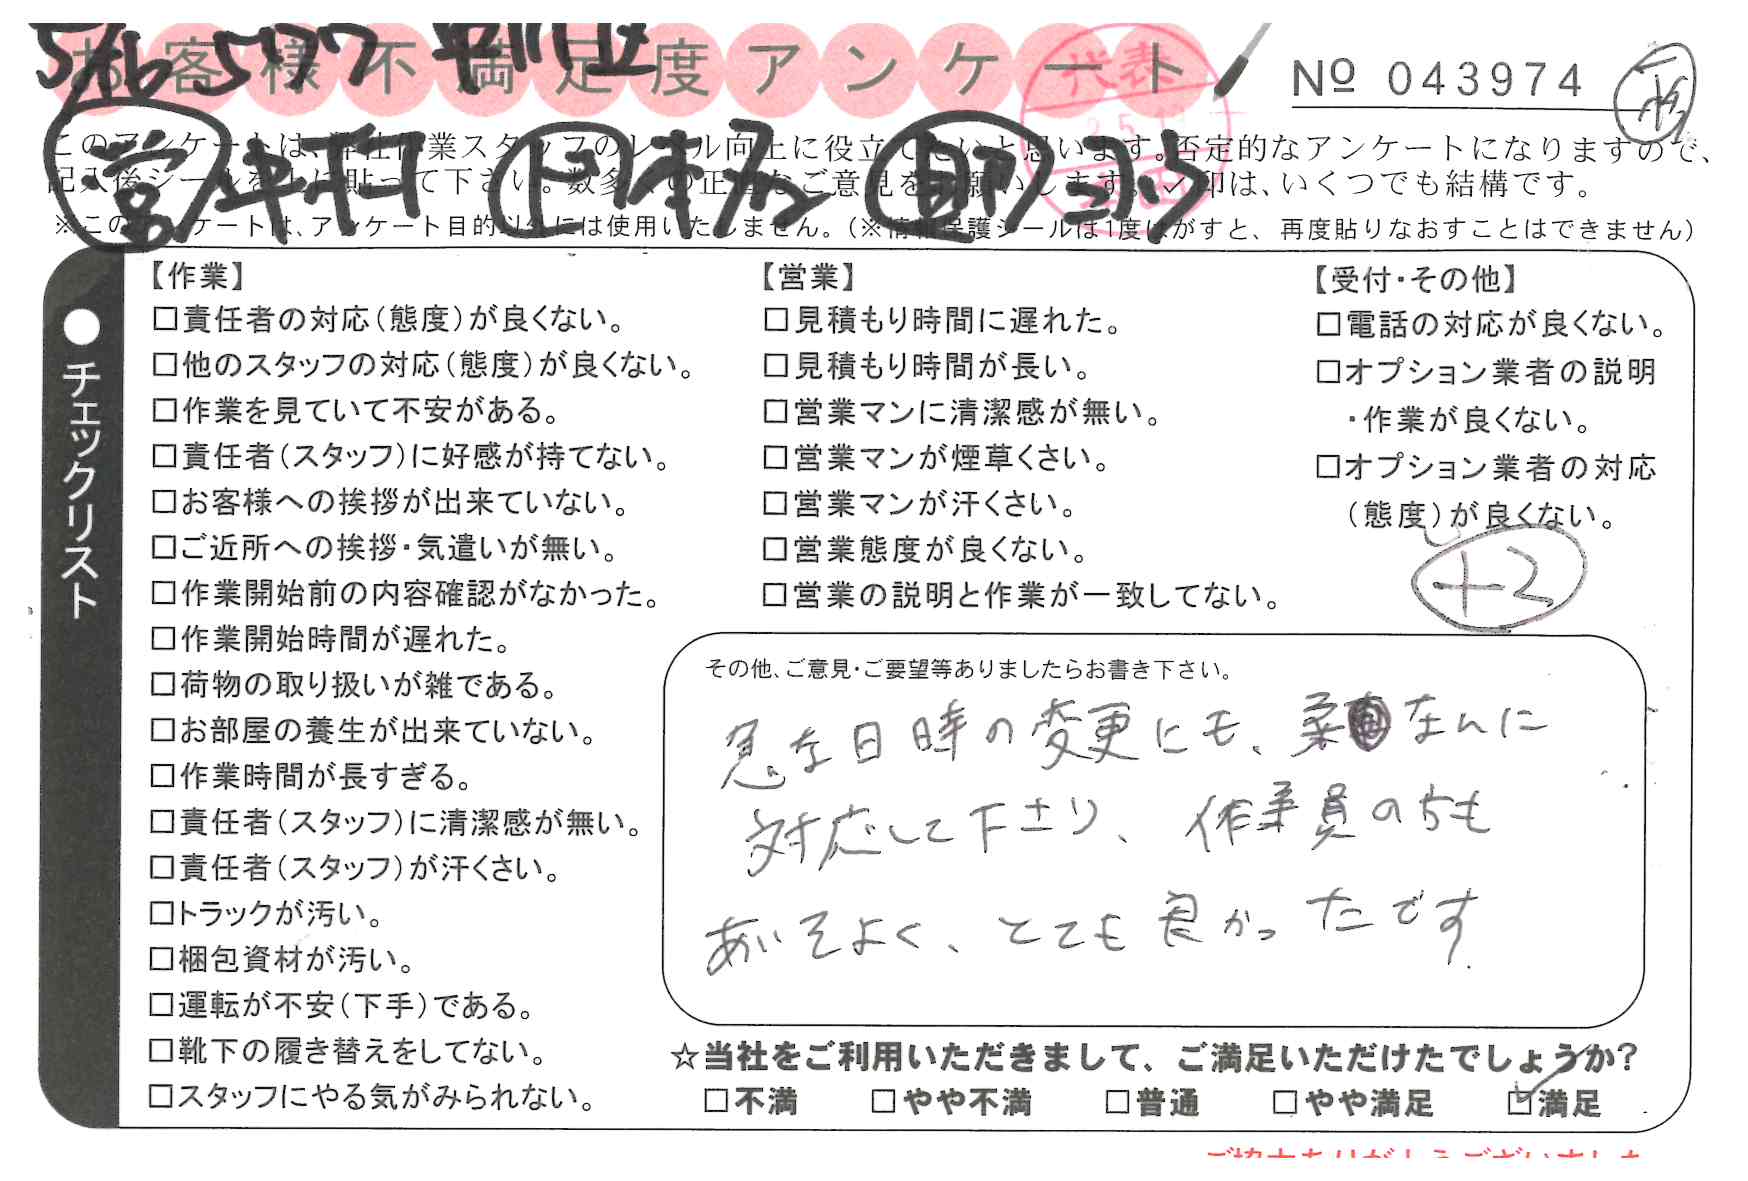 お客様不満足度アンケート
№ 043974
このアンケートは、弊社作業スタッフのレベル向上に役立てたいと思います。否定的なアンケートになりますので、
記入後シールを上に貼って下さい。数多くの正直なご意見をお願いします。✓印は、いくつでも結構です。
※このアンケートは、アンケート目的以外には使用いたしません。(※情報保護シールは1度はがすと、再度貼りなおすことはできません)
代表
●チェックリスト
【作業】
□責任者の対応(態度)が良くない。
□他のスタッフの対応(態度)が良くない。
□作業を見ていて不安がある。
□責任者(スタッフ)に好感が持てない。
□お客様への挨拶が出来ていない。
□ご近所への挨拶・気遣いが無い。
□作業開始前の内容確認がなかった。
□作業開始時間が遅れた。
□荷物の取り扱いが雑である。
□お部屋の養生が出来ていない。
□作業時間が長すぎる。
□責任者(スタッフ)に清潔感が無い。
□責任者(スタッフ)が汗くさい。
□トラックが汚い。
□梱包資材が汚い。
□運転が不安(下手)である。
□靴下の履き替えをしてない。
□スタッフにやる気がみられない。
【営業】
□見積もり時間に遅れた。
□見積もり時間が長い。
□営業マンに清潔感が無い。
□営業マンが煙草くさい。
□営業マンが汗くさい。
□営業態度が良くない。
□営業の説明と作業が一致してない。
【受付・その他】
□電話の対応が良くない。
□オプション業者の説明
・作業が良くない。
□オプション業者の対応
(態度)が良くない。
+2
その他、ご意見・ご要望等ありましたらお書き下さい。
急な日時の変更にも、柔なんに
対応して下さり、作業員の方も
あいそよく、とても良かったです
☆当社をご利用いただきまして、ご満足いただけたでしょうか?
□不満 □やや不満 □普通 □やや満足 ☑満足
ご協力ありがとうございました